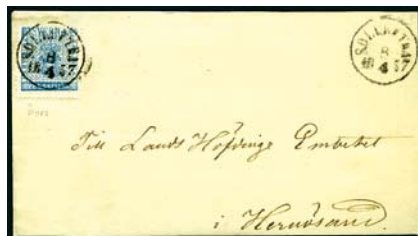 SOLLEFTEÅ
8
18 57
4
SOLLEFTEÅ
8
18 57
4
Till Lands Höfdinge Embetet
i Hernösand.